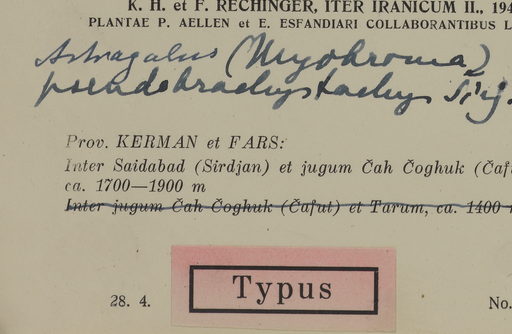 K. H. et F. RECHINGER, ITER IRANICUM II., 194
PLANTAE P. AELLEN et E. ESFANDIARI COLLABORANTIBUS L
Astragalus (Myobroma)
pseudobrachystachys Širj.
Prov. KERMAN et FARS:
Inter Saidabad (Sirdjan) et jugum Čah Čoghuk (Čafu
ca. 1700—1900 m
Inter jugum Čah Čoghuk (Čafut) et Tarum, ca. 1400
Typus
28. 4.
No.